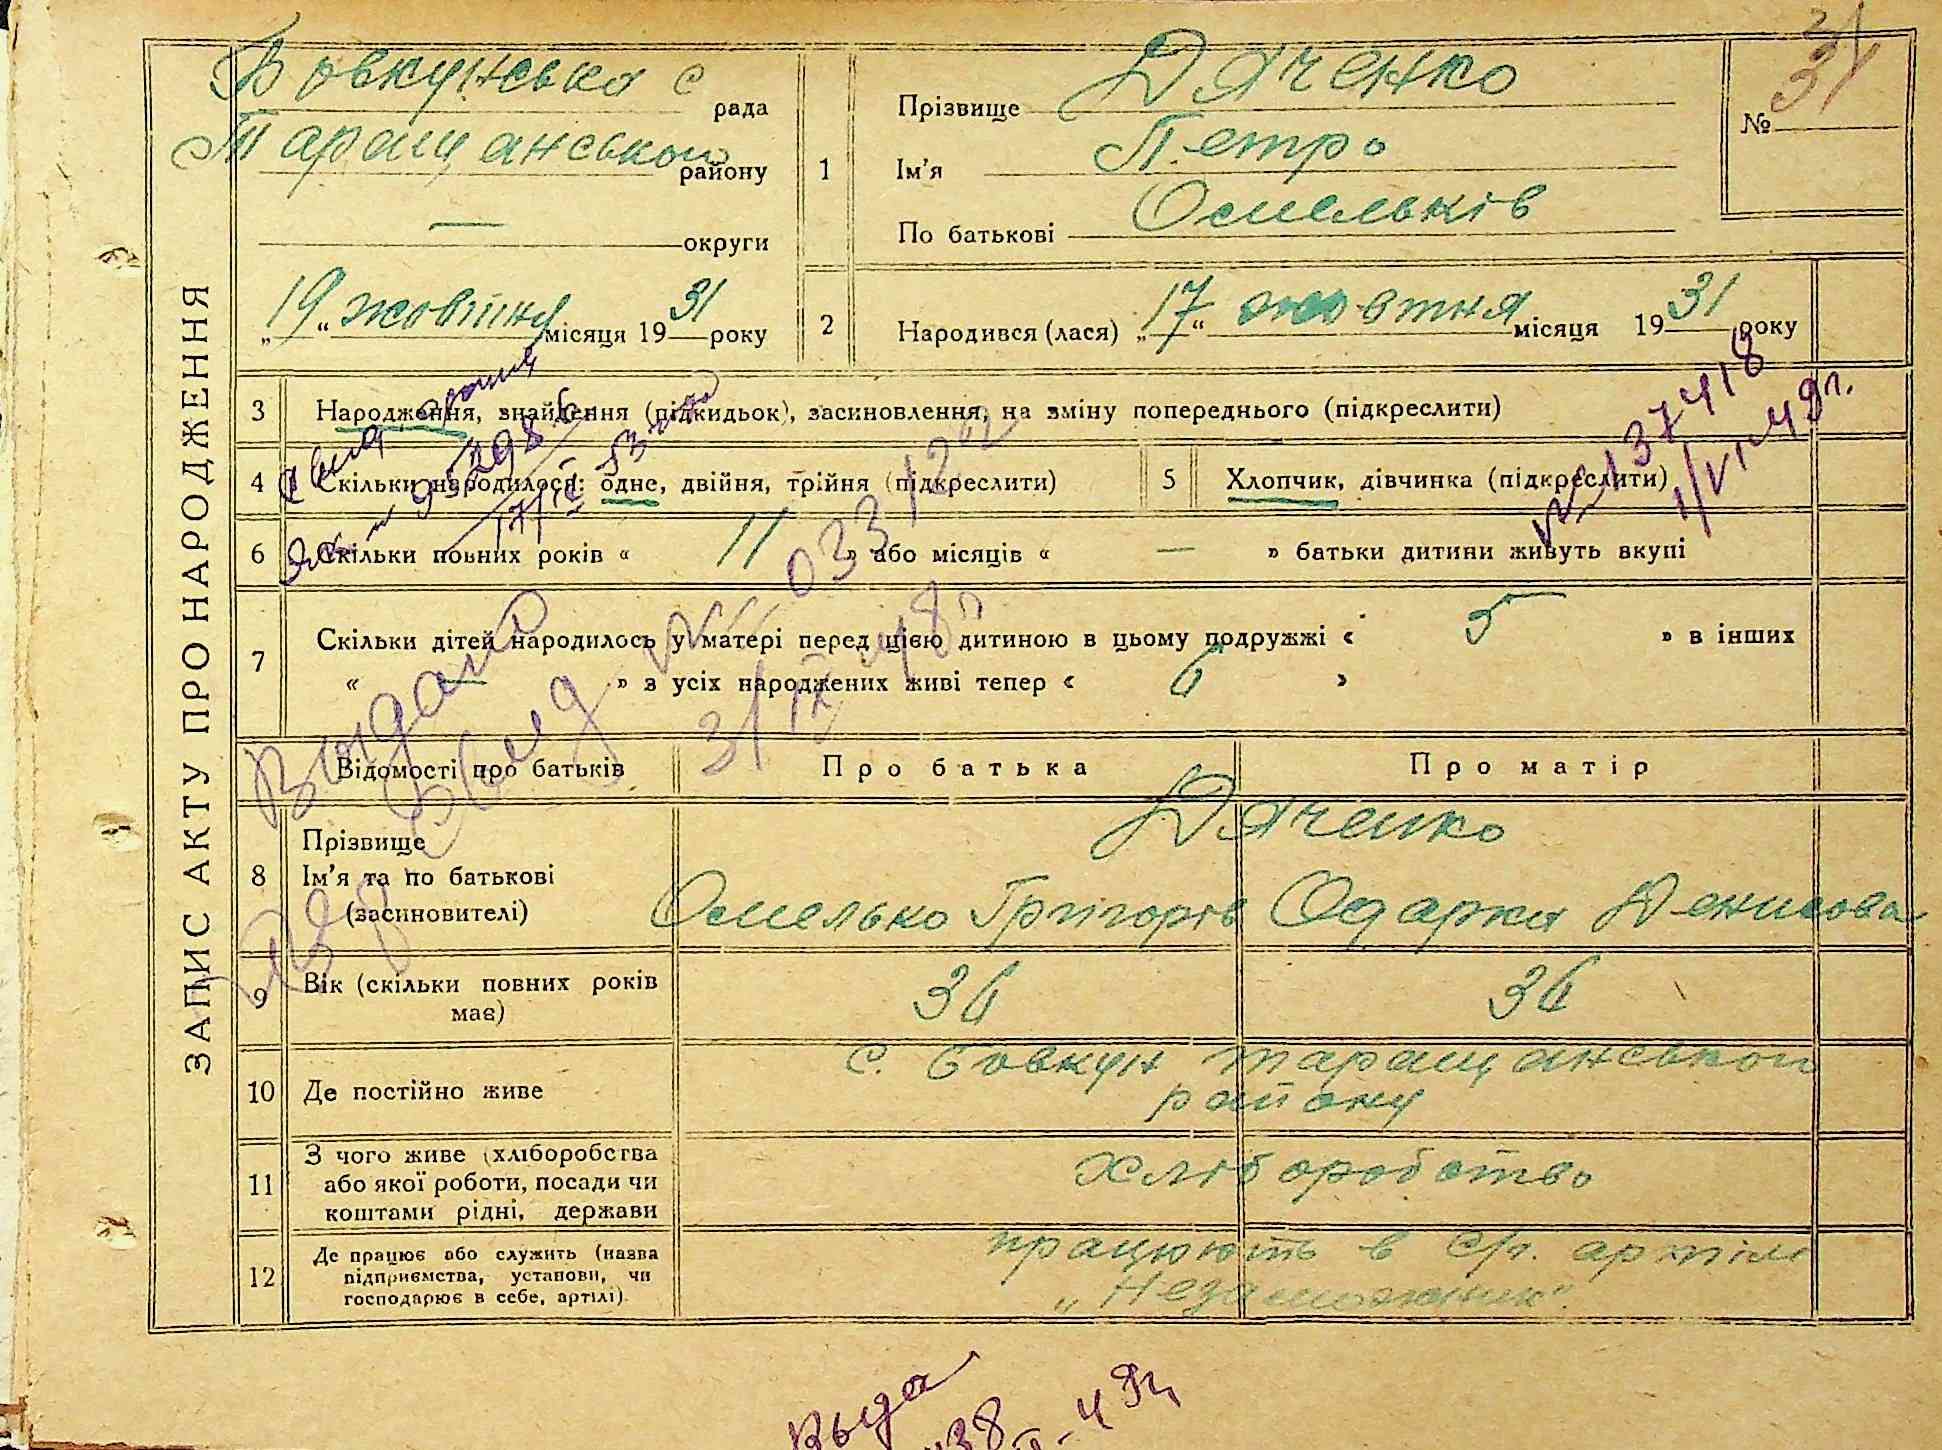 ЗАПИС АКТУ ПРО НАРОДЖЕННЯ
Бовкунська с рада
Таращанського району
— округи
„19“ жовтня місяця 1931 року
1
Прізвище Дяченко
Ім'я Петро
По батькові Омельків
№ 31
2
Народився (лася) „17“ жовтня місяця 1931 року
3 Народження, знайдення (підкидьок), засиновлення, на зміну попереднього (підкреслити)
4 Скільки народилося: одне, двійня, трійня (підкреслити)
5 Хлопчик, дівчинка (підкреслити)
6 Скільки повних років « 11 » або місяців « — » батьки дитини живуть вкупі
7 Скільки дітей народилось у матері перед цією дитиною в цьому подружжі « 5 » в інших
« — » з усіх народжених живі тепер « 6 »
Видано
Свид № 033122
3/IX 48 г
№ 137418
1/VI-49 г.
Відомості про батьків Про батька Про матір
8 Прізвище
Ім'я та по батькові
(засиновителі)
Дяченко
Омелько Григорів Одарка Денисова
9 Вік (скільки повних років
має)
36 36
10 Де постійно живе
с. Бовкун Таращанського
району
11 З чого живе (хліборобства
або якої роботи, посади чи
коштами рідні, держави
хліборобство
12 Де працює або служить (назва
підприємства, установи, чи
господарює в себе, артілі).
працюють в с/г. артілі
„Незаможник".